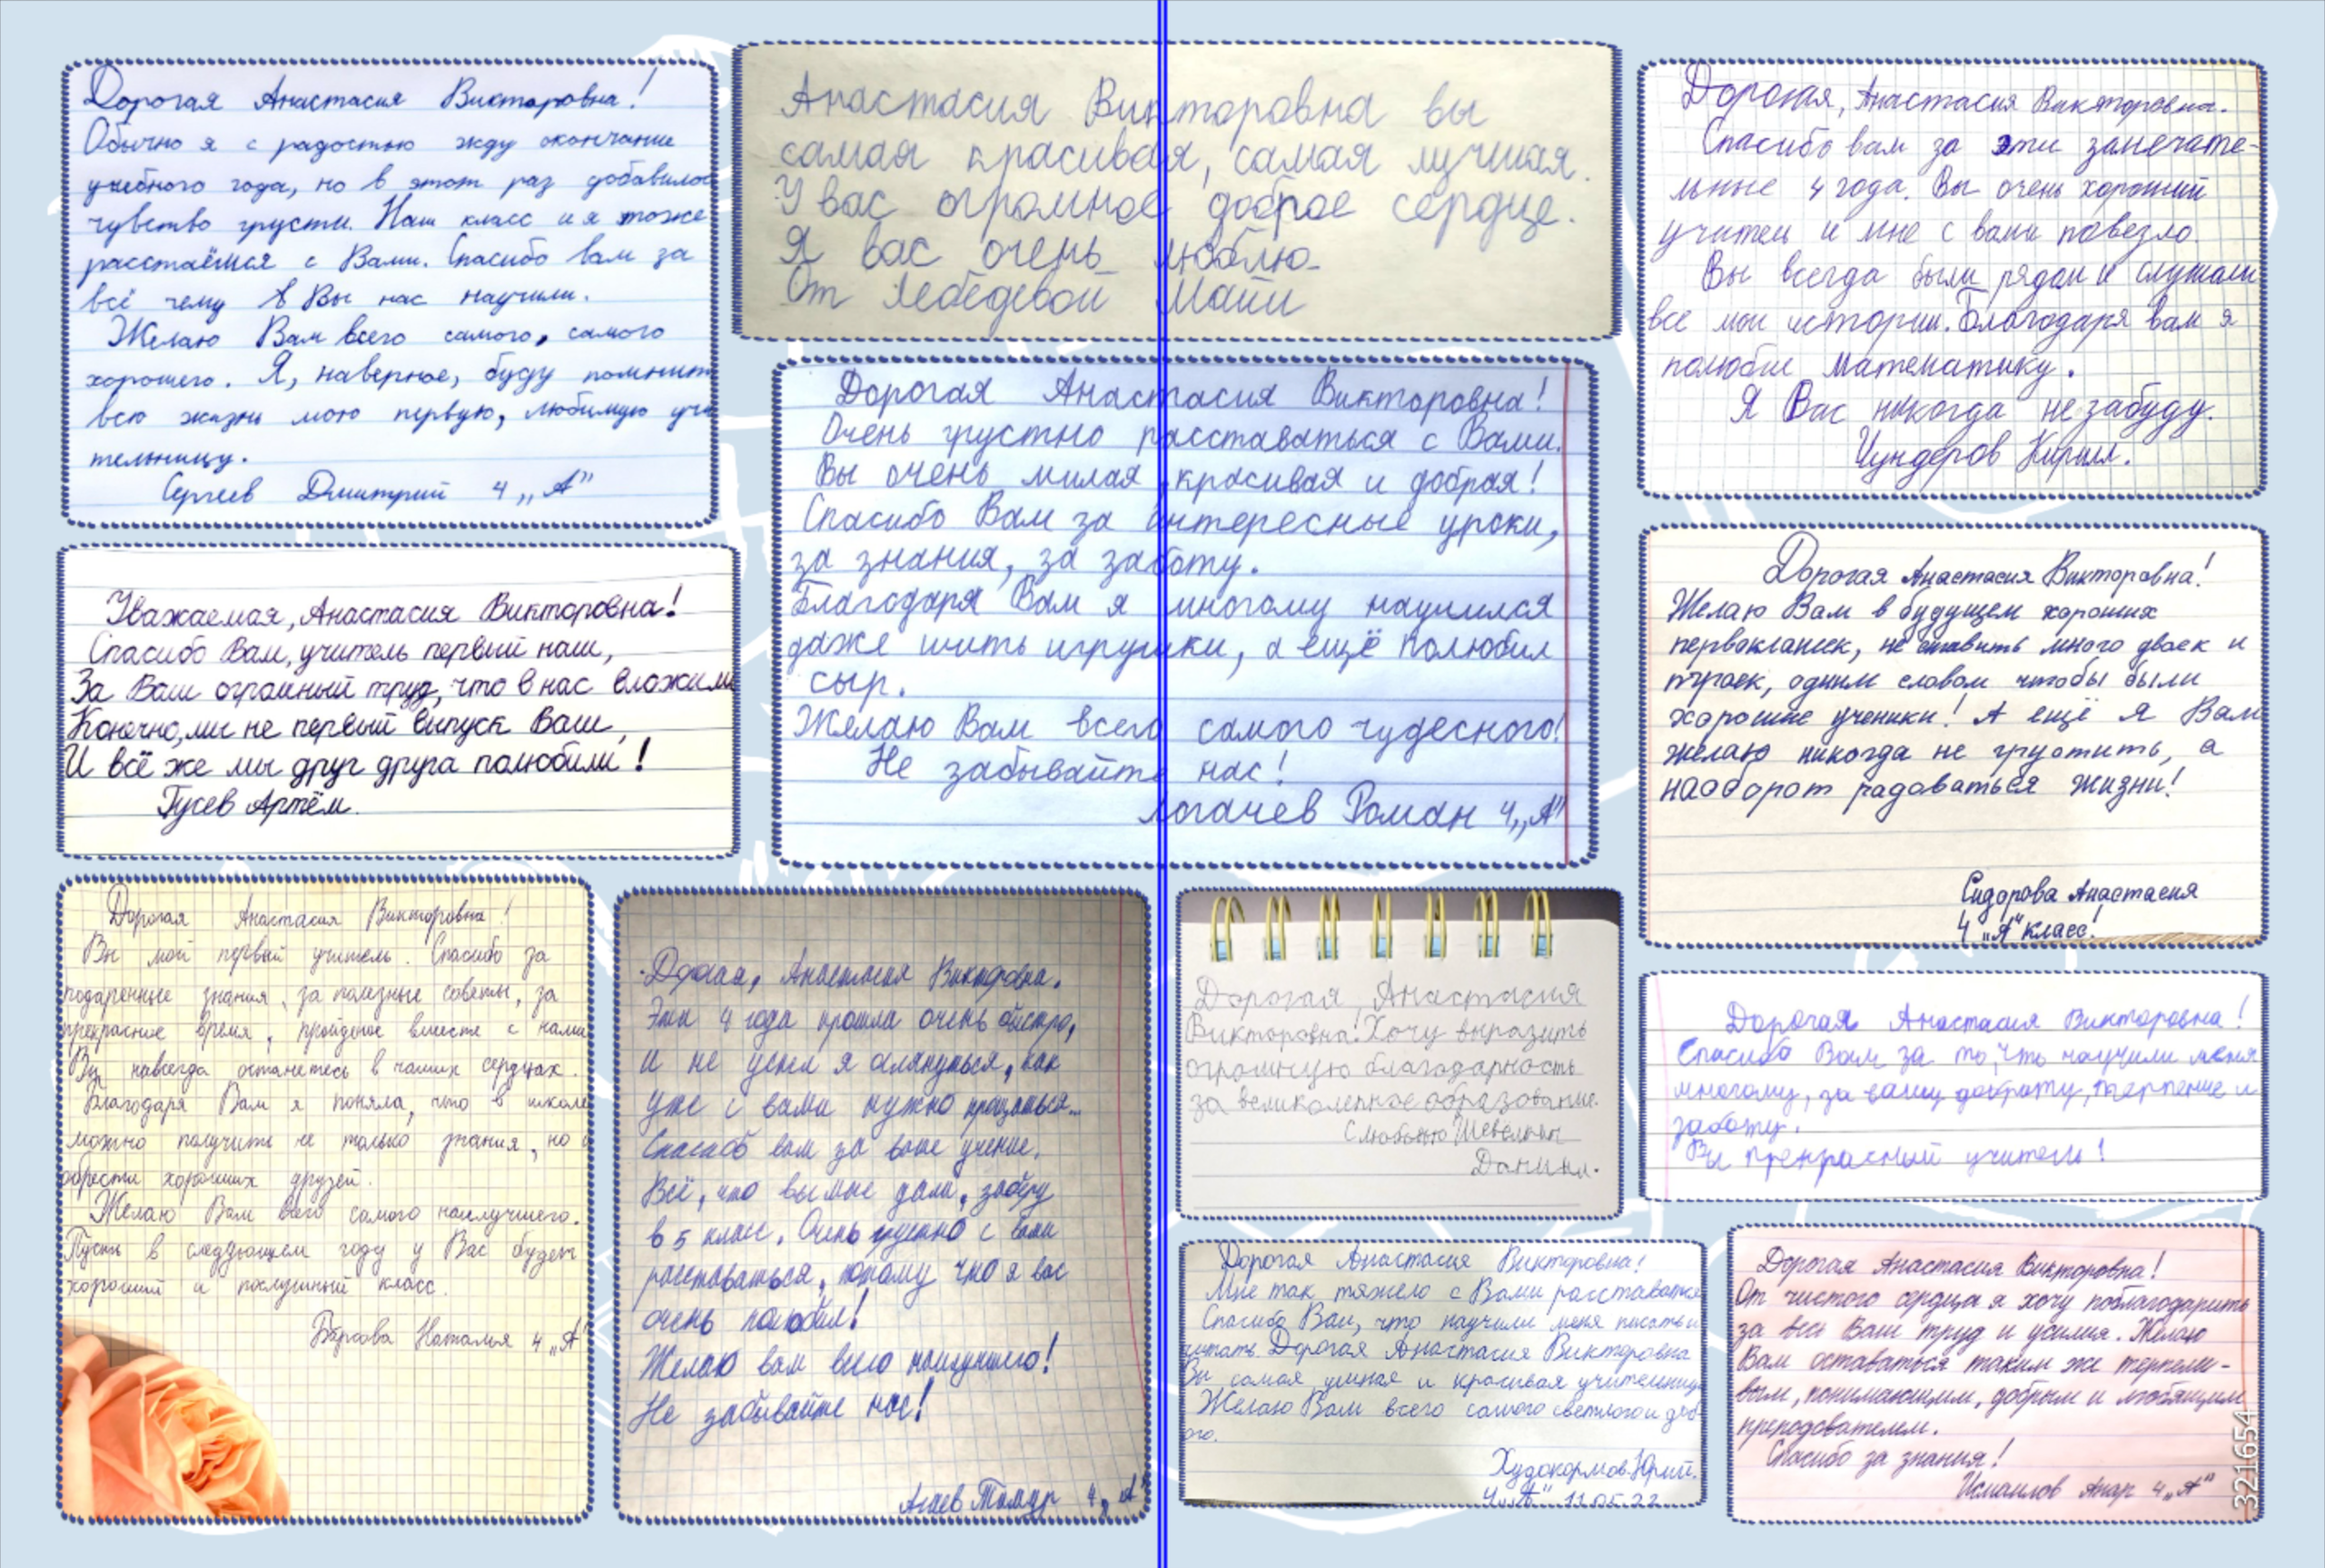 Дорогая Анастасия Викторовна!
Обычно я с радостью жду окончание
учебного года, но в этот раз добавилос
чувство грусти. Наш класс и я тоже
расстаёмся с Вами. Спасибо вам за
всё чему Вы нас научили.
Желаю Вам всего самого, самого
хорошего. Я, наверное, буду помнить
всю жизнь мою первую, любимую учи
тельницу.
Сергеев Дмитрий 4 „А"
Анастасия Викторовна вы
самая красивая, самая лучшая.
У вас огромное доброе сердце.
Я вас очень люблю.
От Лебедевой Майи
Дорогая, Анастасия Викторовна.
Спасибо вам за эти замечате-
льные 4 года. Вы очень хороший
учитель и мне с вами повезло.
Вы всегда были рядом и слушали
все мои истории. Благодаря вам я
полюбил математику.
Я Вас никогда не забуду.
Чундеров Кирилл.
Уважаемая, Анастасия Викторовна!
Спасибо Вам, учитель первый наш,
За Ваш огромный труд, что в нас вложили
Конечно, мы не первый выпуск Ваш,
И всё же мы друг друга полюбили!
Гусев Артём.
Дорогая Анастасия Викторовна!
Очень грустно расставаться с Вами.
Вы очень милая, красивая и добрая!
Спасибо Вам за интересные уроки,
за знания, за заботу.
Благодаря Вам я многому научился
даже шить игрушки, а ещё полюбил
сыр.
Желаю Вам всего самого чудесного!
Не забывайте нас!
Логачев Роман 4„А"
Дорогая Анастасия Викторовна!
Желаю Вам в будущем хороших
первоклашек, не ставить много двоек и
троек, одним словом чтобы были
хорошие ученики! А ещё я Вам
желаю никогда не грустить, а
наоборот радоваться жизни!
Сидорова Анастасия
4 „А" класс!
Дорогая Анастасия Викторовна!
Вы мой первый учитель. Спасибо за
подаренные знания, за полезные советы, за
прекрасное время, пройденое вместе с нами
Вы навсегда останетесь в наших сердцах.
Благодаря Вам я поняла, что в школе
можно получить не только знания, но и
обрести хороших друзей.
Желаю Вам всего самого наилучшего.
Пусть в следующем году у Вас будет
хороший и послушный класс.
Наталья 4 „А"
Дорогая, Анастасия Викторовна.
Эти 4 года прошла очень быстро,
и не успел я оглянуться, как
уже с вами нужно прощаться...
Спасиб вам за ваше учение.
Всё, что вы мне дали, заберу
в 5 класс. Очень грустно с вами
расставаться, потому что я вас
очень полюбил!
Желаю вам всего наилучшего!
Не забывайте нас!
Агаев Тимур 4 „А"
Дорогая, Анастасия
Викторовна! Хочу выразить
огромную благодарность
за великолепное образование.
С любовью
Даниил.
Дорогая Анастасия Викторовна!
Спасибо Вам за то, что научили меня
многому, за вашу доброту, терпение и
заботу.
Вы прекрасный учитель!
Дорогая Анастасия Викторовна!
Мне так тяжело с Вами расставаться
Спасибо Вам, что научили меня писать и
читать. Дорогая Анастасия Викторовна
Вы самая умная и красивая учительница
Желаю Вам всего самого светлого и доб
ого.
Худокормов Юрий.
4 „А" 11.05.22
Дорогая Анастасия Викторовна!
От чистого сердца я хочу поблагодарить
за весь Ваш труд и усилия. Желаю
Вам оставаться таким же терпели-
вым, понимающим, добрым и любящим
преподователем.
Спасибо за знания!
Исмаилов Анар 4„А"
321654